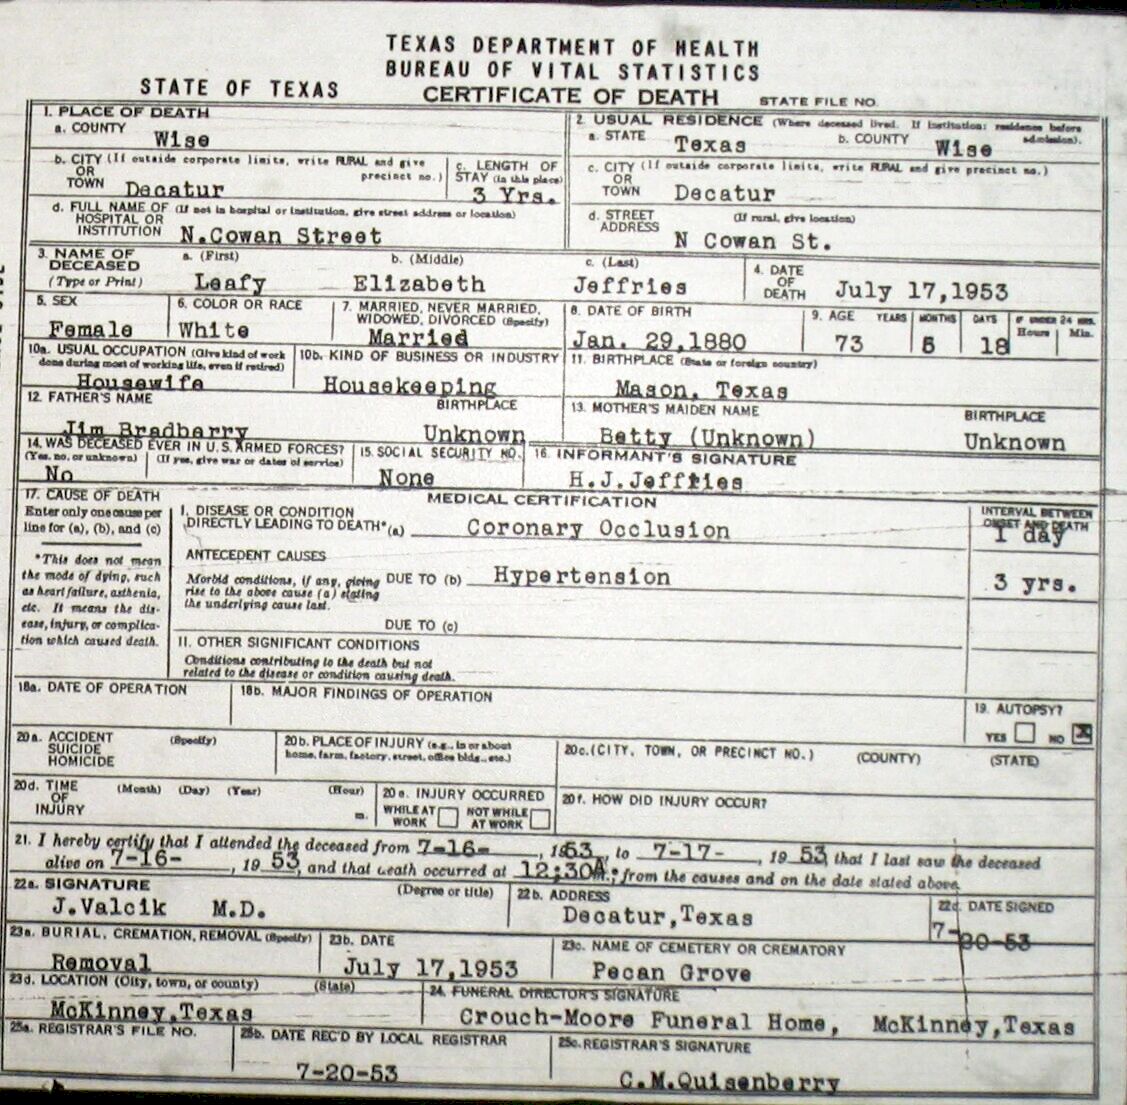 TEXAS DEPARTMENT OF HEALTH
BUREAU OF VITAL STATISTICS
STATE OF TEXAS CERTIFICATE OF DEATH STATE FILE NO.
1. PLACE OF DEATH
a. COUNTY Wise
2. USUAL RESIDENCE (Where deceased lived. If institution: residence before admission).
a. STATE Texas b. COUNTY Wise
b. CITY (If outside corporate limits, write RURAL and give precinct no.) OR TOWN Decatur
c. LENGTH OF STAY (in this place) 3 Yrs.
c. CITY (If outside corporate limits, write RURAL and give precinct no.) OR TOWN Decatur
d. FULL NAME OF (If not in hospital or institution, give street address or location) HOSPITAL OR INSTITUTION N.Cowan Street
d. STREET ADDRESS (If rural, give location) N Cowan St.
3. NAME OF DECEASED (Type or Print)
a. (First) Leafy
b. (Middle) Elizabeth
c. (Last) Jeffries
4. DATE OF DEATH July 17,1953
5. SEX Female
6. COLOR OR RACE White
7. MARRIED, NEVER MARRIED, WIDOWED, DIVORCED (Specify) Married
8. DATE OF BIRTH Jan. 29,1880
9. AGE YEARS 73 MONTHS 5 DAYS 18 IF UNDER 24 HRS. Hours Min.
10a. USUAL OCCUPATION (Give kind of work done during most of working life, even if retired) Housewife
10b. KIND OF BUSINESS OR INDUSTRY Housekeeping
11. BIRTHPLACE (State or foreign country) Mason, Texas
12. FATHER'S NAME Jim Bradberry BIRTHPLACE Unknown
13. MOTHER'S MAIDEN NAME Betty (Unknown) BIRTHPLACE Unknown
14. WAS DECEASED EVER IN U.S. ARMED FORCES?
(Yes, no, or unknown) No (If yes, give war or dates of service)
15. SOCIAL SECURITY NO. None
16. INFORMANT'S SIGNATURE H.J.Jeffries
MEDICAL CERTIFICATION
17. CAUSE OF DEATH
Enter only one cause per line for (a), (b), and (c)
*This does not mean the mode of dying, such as heart failure, asthenia, etc. It means the disease, injury, or complication which caused death.
I. DISEASE OR CONDITION DIRECTLY LEADING TO DEATH* (a) Coronary Occlusion
INTERVAL BETWEEN ONSET AND DEATH 1 day
ANTECEDENT CAUSES
Morbid conditions, if any, giving rise to the above cause (a) stating the underlying cause last.
DUE TO (b) Hypertension 3 yrs.
DUE TO (c)
II. OTHER SIGNIFICANT CONDITIONS
Conditions contributing to the death but not related to the disease or condition causing death.
18a. DATE OF OPERATION
18b. MAJOR FINDINGS OF OPERATION
19. AUTOPSY?
YES NO X
20a. ACCIDENT SUICIDE HOMICIDE (Specify)
20b. PLACE OF INJURY (e.g., in or about home, farm, factory, street, office bldg., etc.)
20c. (CITY, TOWN, OR PRECINCT NO.) (COUNTY) (STATE)
20d. TIME OF INJURY (Month) (Day) (Year) (Hour) m.
20e. INJURY OCCURRED WHILE AT WORK NOT WHILE AT WORK
20f. HOW DID INJURY OCCUR?
21. I hereby certify that I attended the deceased from 7-16-, 1953, to 7-17-, 1953, that I last saw the deceased
alive on 7-16-, 1953, and that death occurred at 12:30A.m., from the causes and on the date stated above.
22a. SIGNATURE (Degree or title) J.Valcik M.D.
22b. ADDRESS Decatur,Texas
22c. DATE SIGNED 7-20-53
23a. BURIAL, CREMATION, REMOVAL (Specify) Removal
23b. DATE July 17,1953
23c. NAME OF CEMETERY OR CREMATORY Pecan Grove
23d. LOCATION (City, town, or county) (State) McKinney,Texas
24. FUNERAL DIRECTOR'S SIGNATURE Crouch-Moore Funeral Home, McKinney,Texas
25a. REGISTRAR'S FILE NO.
25b. DATE REC'D BY LOCAL REGISTRAR 7-20-53
25c. REGISTRAR'S SIGNATURE C.M.Quisenberry